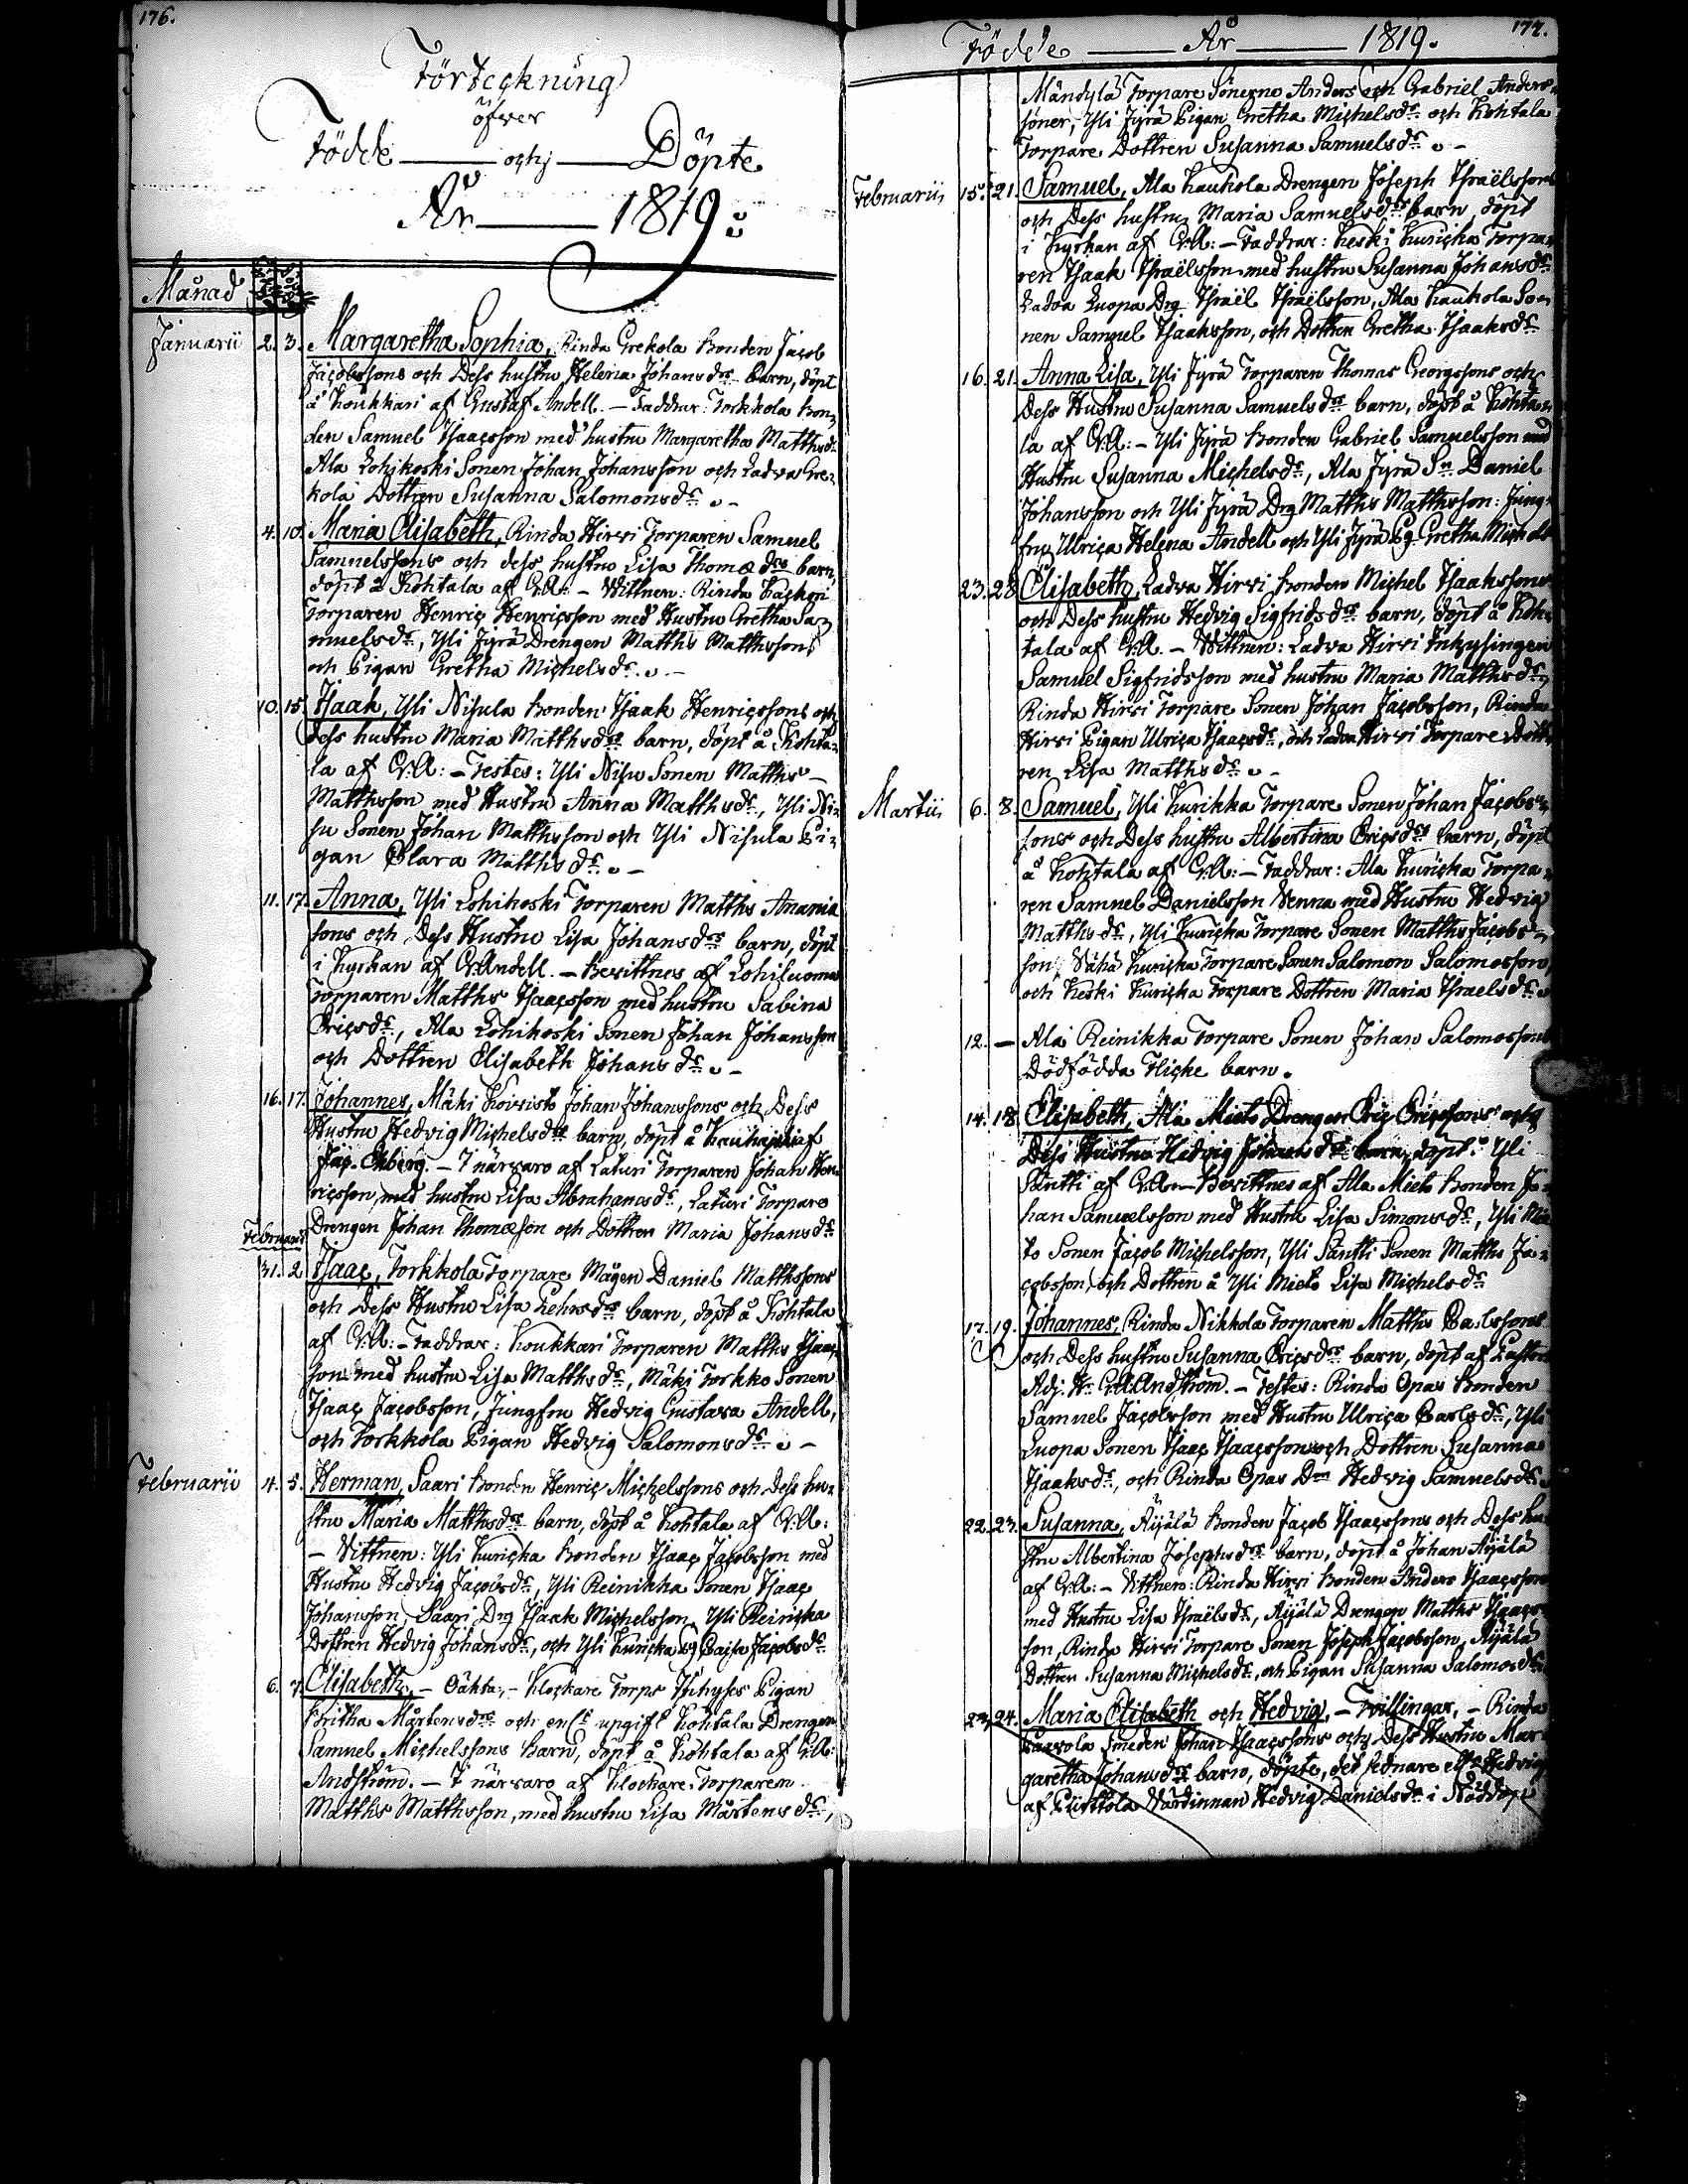 176.
Förteckning
öfver
Födde — och — Döpte
År — 1819.
Månad
Januarii 2. 3. Margaretha Sophia, Rinda Grekola Bonden Jacob
Jacobssons och Dess hustru Helena Johans drs barn, döpt
å Koukkari af Gustaf Andell. — Faddrar: Torkkola Bon-
den Samuel Isaacsson med hustru Margaretha Matths dr
Ala Lohikoski Sonen Johan Johansson och Ladva Gre-
kola Dottren Susanna Salomons dr. -
4. 10. Maria Elisabeth, Rinda Hirvi Torparen Samuel
Samuelssons och dess hustru Lisa Thomæ drs barn,
döpt å Kohtala af G:A: — Vittnen: Rinda
Torparen Henric Henricsson med Hustru Gretha Sa-
muels dr, Yli Jyrä Drengen Matths Matthssons
och Pigan Gretha Michels dr. -
10. 15. Isaak, Yli Nisula Bonden Isaak Henricssons och
Dess hustru Maria Matths drs barn, döpt å Kohta-
la af G:A: — Testes: Yli Nisu Sonen Matths
Matthsson med Hustru Anna Matths dr, Yli Ni-
su Sonen Johan Matthsson och Yli Nisula Pi-
gan Clara Matths dr. -
11. 17. Anna, Yli Lohikoski Torparen Matths Anania
sons och Dess Hustru Lisa Johans drs barn, döpt
i Kyrkan af G:Andell. — Bevittnes af Lohiluoma
Torparen Matths Isaacsson med hustru Sabina
Erics dr, Ala Lohikoski Sonen Johan Johansson
och Dottren Elisabeth Johans dr. -
16. 17. Johannes, Mäki Koivisto Johan Johanssons och Dess
Hustru Hedvig Michels drs barn, döpt å Kauhajoki af
Jac. Ekberg. — I närvaro af Laturi Torparen Johan Hen
ricsson med hustru Lisa Abrahams dr, Laturi Torpare
Drengen Johan Thomæson och Dottren Maria Johans dr
Februarii
31. 2. Isaac, Torkkola Torpare Mågen Daniel Matthssons
och Dess Hustru Lisa drs barn, döpt å Kohtala
af G:A: — Faddrar: Koukkari Torparen Matths Isaac
son med hustru Lisa Matths dr, Mäki Torkko Sonen
Isaac Jacobsson, Jungfru Hedvig Gustava Andell,
och Torkkola Pigan Hedvig Salomons dr. -
Februarii 4. 5. Herman, Saari Bonden Henric Michelssons och Dess hu-
stru Maria Matths drs barn, döpt å Kohtala af G:A:
— Vittnen: Yli Kuricka Bonden Isaac Jacobsson med
Hustru Hedvig Jacobs dr, Yli Reinikka Sonen Isaac
Johansson, Saari Drg Isaak Michelsson, Yli Reinicka
Dottren Hedvig Johans dr, och Yli Kuricka Pg Cajsa Jacobs dr
6. 7. Elisabeth, — Oäkta, — Klockare Torps Inhyses Pigan
Britha Mårtens drs och enl. upgift Kohtala Drengen
Samuel Michelssons Barn, döpt å Kohtala af G:A:
Andström. — I närvaro af Klockare Torparen
Matths Matthsson, med hustru Lisa Mårtens dr,
Födde — År — 1819. 177.
Mändylä Torpare Sönerne Anders och Gabriel Anders-
söner, Yli Jyrä Pigan Gretha Michels dr och Kohtala
Torpare Dottren Susanna Samuels dr. -
Februarii 15. 21. Samuel, Ala Kaukola Drengen Joseph Israëlssons
och Dess hustru Maria Samuels drs barn, döpt
i Kyrkan af G:A: — Faddrar: Keski Kuricka Torpa-
ren Isaak Israëlsson med hustru Susanna Johans dr
Ladva Luopa Drg Israël Israëlsson, Ala Kaukola So-
nen Samuel Isaaksson, och Dottren Gretha Isaaks dr
16. 21. Anna Lisa, Yli Jyrä Torparen Thomas Georgssons och
Dess Hustru Susanna Samuels drs barn, döpt å Kohta-
la af G:A: — Yli Jyrä Bonden Gabriel Samuelsson med
Hustru Susanna Michels dr, Ala Jyrä Sn Daniel
Johansson och Yli Jyrä Drg Matths Matthsson: Jung-
fru Ulrica Helena Andell och Yli Jyrä Pg. Gretha Michels
23. 28. Elisabeth, Ladva Hirvi Bonden Michel Isaakssons
och Dess hustru Hedvig Sigfrids drs barn, döpt å Koh-
tala af G:A. — Vittnen: Ladva Hirvi Inhysingen
Samuel Sigfridsson med hustru Maria Matths dr,
Rinda Hirvi Torpare Sonen Johan Jacobsson, Rinda
Hirvi Pigan Ulrica Isaacs dr, och Ladva Hirvi Torpare Dott
ren Lisa Matths dr. -
Martii 6. 8. Samuel, Yli Kurikka Torpare Sonen Johan Jacobs-
sons och Dess hustru Albertina Erics drs barn, döpt
å Kohtala af G:A: — Faddrar: Ala Kuricka Torpa-
ren Samuel Danielsson Venna med Hustru Hedvig
Matths dr, Yli Kuricka Torpare Sonen Matths Jacobs-
son, Vähä Kuricka Torpare Sonen Salomon Salomosson,
och Keski Kuricka Torpare Dottren Maria Israels dr.
12. — Ala Reinikka Torpare Sonen Johan Salomossons
Dödfödda Flicke barn.
14. 18. Elisabeth, Ala Mieto Drengen Eric Ericssons och
Dess Hustru Hedvig Johans drs barn, döpt å Yli
Säntti af G:A: — Bevittnes af Ala Mieto Bonden Jo-
han Samuelsson med Hustru Lisa Simons dr, Yli Mie
to Sonen Jacob Michelsson, Yli Säntti Sonen Matths Ja-
cobsson, och Dottren å Yli Mieto Lisa Michels dr
17. 19. Johannes, Rinda Nikkola Torparen Matths Carlssons
och Dess hustru Susanna Erics drs barn, döpt af Pastors
Adj. Hr G:A:Andström. — Testes: Rinda Opas Bonden
Samuel Jacobsson med Hustru Ulrica Carls dr, Yli
Luopa Sonen Isaac Isaacsson och Dottren Susanna
Isaaks dr, och Rinda Opas Drn Hedvig Samuels dr.
22. 23. Susanna, Äijälä Bonden Jacob Isaacssons och Dess hu
stru Albertina Josephs drs barn, döpt å Johan Äijälä
af G:A: — Vittnen: Rinda Hirvi Bonden Anders Isaacsson
med Hustru Lisa Israëls dr, Äijälä Drengen Matths Isaacs-
son, Rinda Hirvi Torpare Sonen Joseph Jacobsson, Äijälä
Dottren Susanna Michels dr, och Pigan Susanna Salomos dr
23. 24. Maria Elisabeth och Hedvig, — Tvillingar, — Rinda
Paavola Smeden Johan Isaacssons och Dess Hustru Mar-
garetha Johans drs barn, döpte, det sednare Hedvig
af Piirttola Värdinnan Hedvig Daniels dr i Nöddop